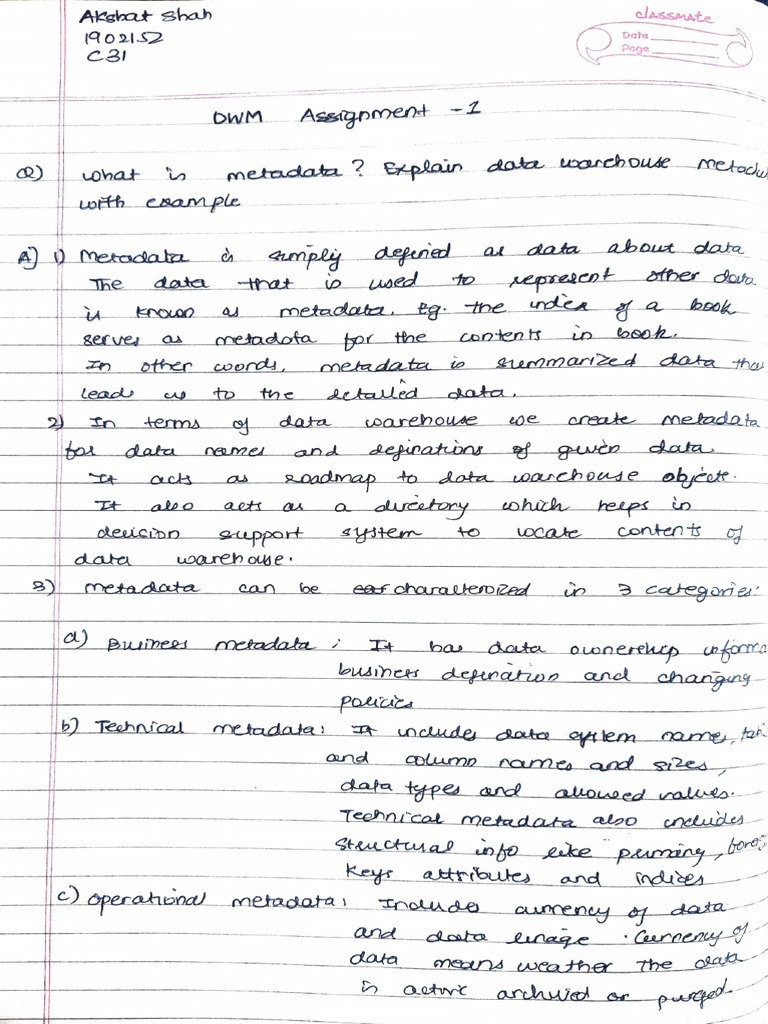 Akshat Shah
1902152
C31
classmate
Date
Page
DWM Assignment - 1
Q) What is metadata? Explain data warehouse
with example
A] 1) Metadata is simply defined as data about data
The data that is used to represent other data
is known as metadata. Eg. the index of a book
serves as metadata for the contents in book.
In other words, metadata is summarized data
leads us to the detailed data.
2) In terms of data warehouse we create metadata
for data names and definations of given data.
It acts as roadmap to data warehouse objects.
It also acts as a directory which helps in
decision support system to locate contents of
data warehouse.
3) Metadata can be characterized in 3 categories:
a) Business metadata : It has data ownership
business defination and changing
policies
b) Technical metadata: It includes data system names,
and column names and sizes,
data types and allowed values.
Technical metadata also includes
structural info like primary,
keys attributes and indices
c) Operational metadata: Includes currency of data
and data linage. Currency of
data means weather the data
is active archived or purged.